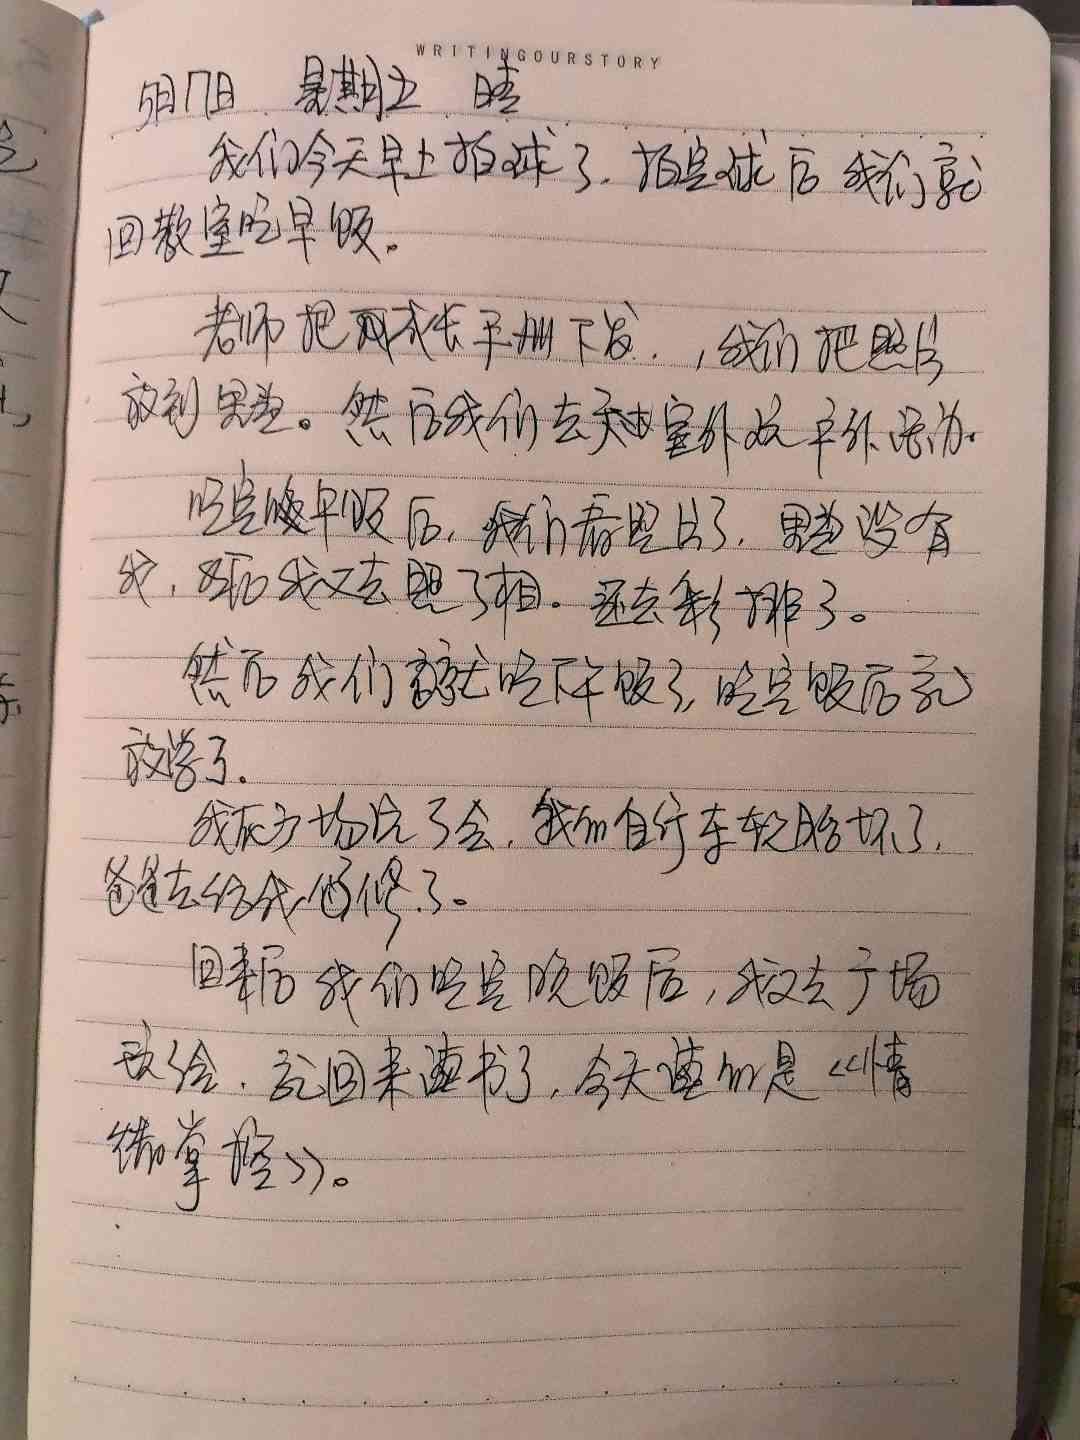 WRITINGOURSTORY
5月17日 星期五 晴
我们今天早上拍球了.拍完球后我们就
回教室吃早饭。
老师把成长手册下发.,我们把照片
放到里边。然后我们去室外玩户外活动.
吃完早饭后,我们看照片了.里边没有
我,我又去照了相。还去彩排了。
然后我们就吃下午饭了,吃完饭后就
放学了.
我在广场玩了会,我的自行车轮胎坏了,
爸爸去给我修了。
回来后我们吃完晚饭后,我又去广场
玩了会.就回来读书了,今天读的是《情
绪掌控》。